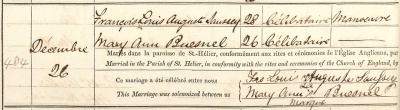 François Louis Auguste Saussey 28 Célibataire Manoeuvre
Décembre
Mary Ann Buesnel 26 Célibataire
484
26
Mariés dans la paroisse de St.-Hélier, conformément aux rites et cérémonies de l'Église Anglicane, par
Married in the Parish of St. Hélier, in conformity with the rites and ceremonies of the Church of England, by
Ce mariage a été célébré entre nous
Fra Louis Auguste
This Marriage was solemnized between us
Mary Ann Buesnel
Marque